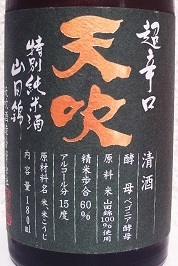 超辛口
天吹
特別純米酒
山田錦
清酒
酵母 ベゴニア酵母
原料米 山田錦100%使用
精米歩合 60%
アルコール分 15度
原材料名 米・米こうじ
内容量 1800ml